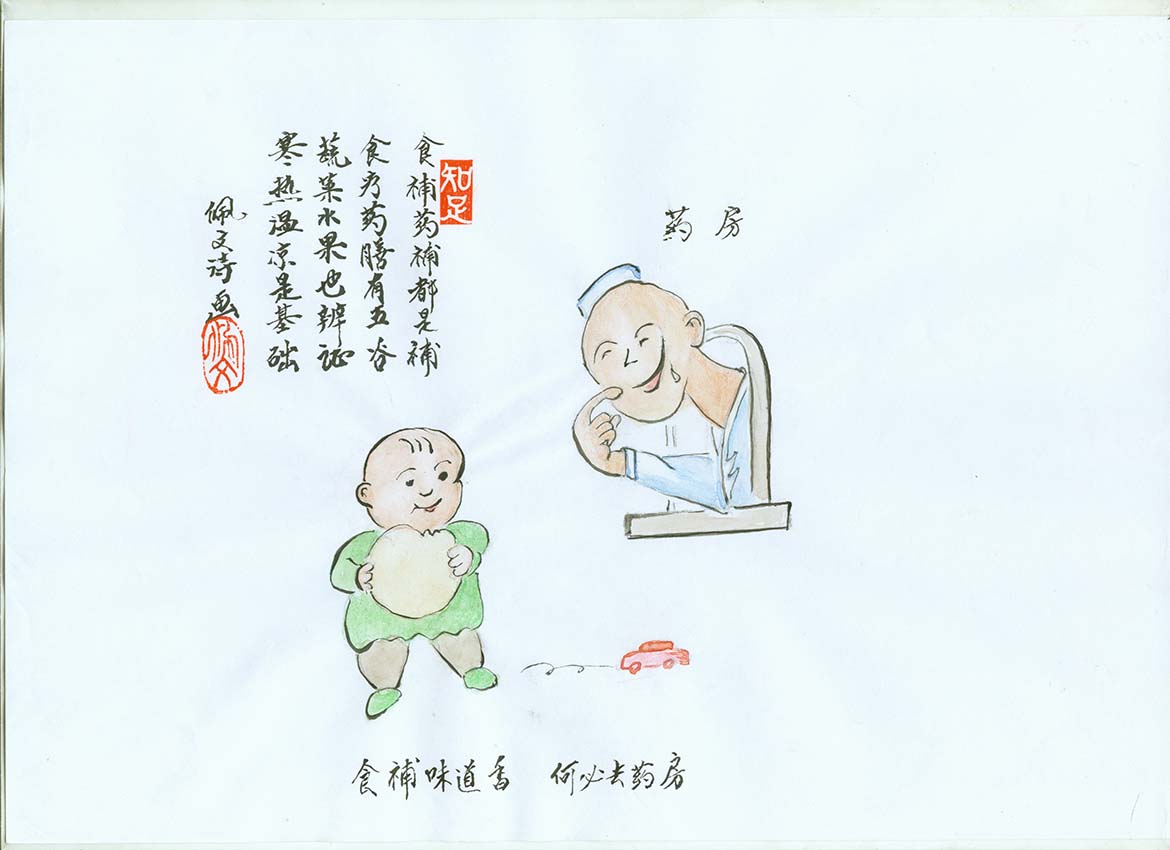 知足
食補药補都是補
食疗药膳有五谷
蔬菜水果也辨证
寒热温凉是基础
佩文诗画
药房
食補味道香　何必去药房